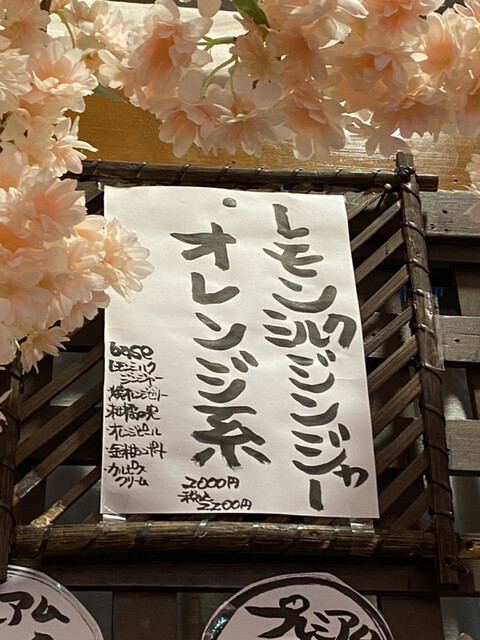 レモンミルクジンジャー
・オレンジ系
base
レモンミルク
ジンジャー
・焼オレンジゼリー
・柑橘の実
・オレンジピール
・金柑コンポート
・カルピス
クリーム
2000円
税込
2200円
プレミアム
プレミアム